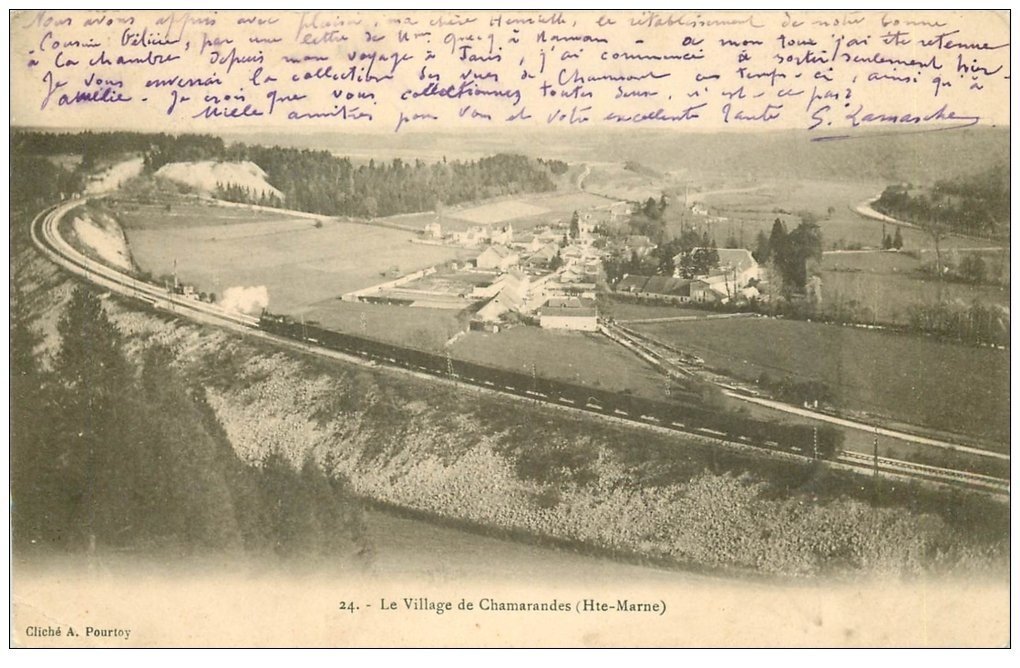 Nous avons appris avec plaisir, ma chère Henriette, le rétablissement de notre bonne
Cousine Félicie, par une lettre de Mme à Maman - de mon coté j'ai été retenue
à la chambre depuis mon voyage à Paris, j'ai commencé à sortir seulement hier -
Je vous enverrai la collection des vues de Chaumont ces temps-ci, ainsi qu'à
Amélie - Je crois que vous collectionnez toutes deux, n'est-ce pas?
Mille amitiés pour vous et votre excellente Tante G. Lamarche
24. - Le Village de Chamarandes (Hte-Marne)
Cliché A. Pourtoy